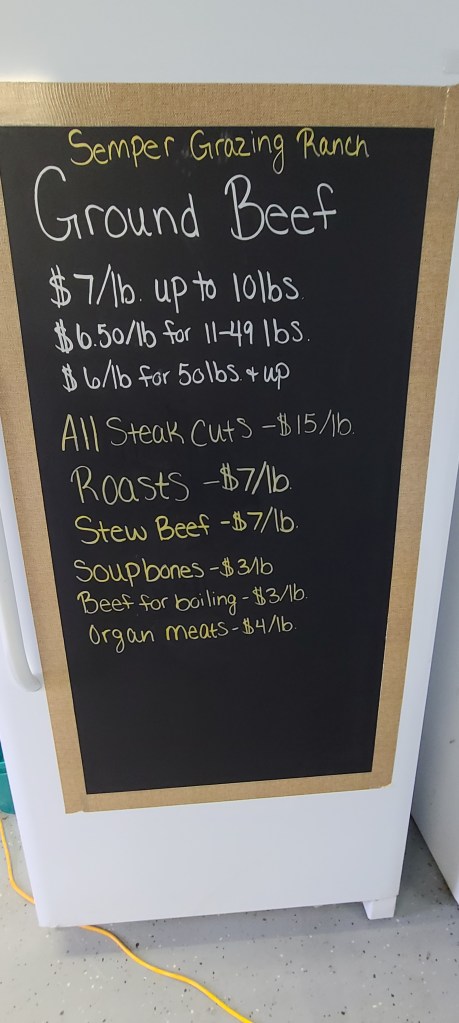 Semper Grazing Ranch
Ground Beef
$7/lb. up to 10lbs.
$6.50/lb for 11-49 lbs.
$6/lb for 50lbs. & up
All Steak Cuts - $15/lb.
Roasts - $7/lb.
Stew Beef - $7/lb.
Soupbones - $3/lb
Beef for boiling - $3/lb.
Organ meats - $4/lb.